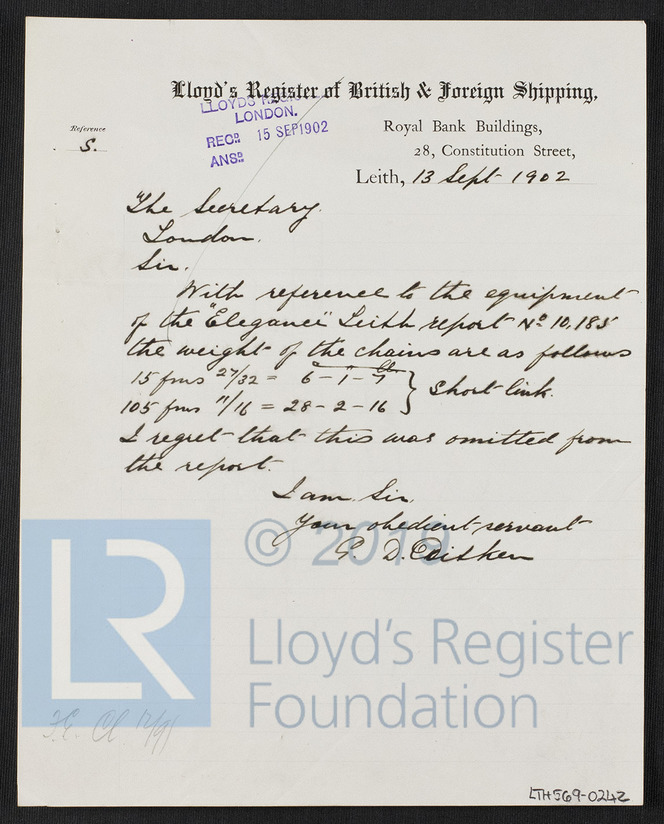 Lloyd's Register of British & Foreign Shipping,
LLOYDS REGIS
LONDON.
RECD. 15 SEP 1902
ANSD.
Royal Bank Buildings,
28, Constitution Street,
Reference
S.
Leith, 13 Sept 1902
The Secretary.
London.
Sir.
With reference to the equipment
of the "Elegance" Leith report No. 10,185
the weight of the chains are as follows
15 fms 27/32 = 6 - 1 - 7
105 fms 11/16 = 28 - 2 - 16 } Short link.
I regret that this was omitted from
the report.
I am Sir.
Your obedient servant
P. D.
© 2019
LR
Lloyd's Register
Foundation
LTH569-0242